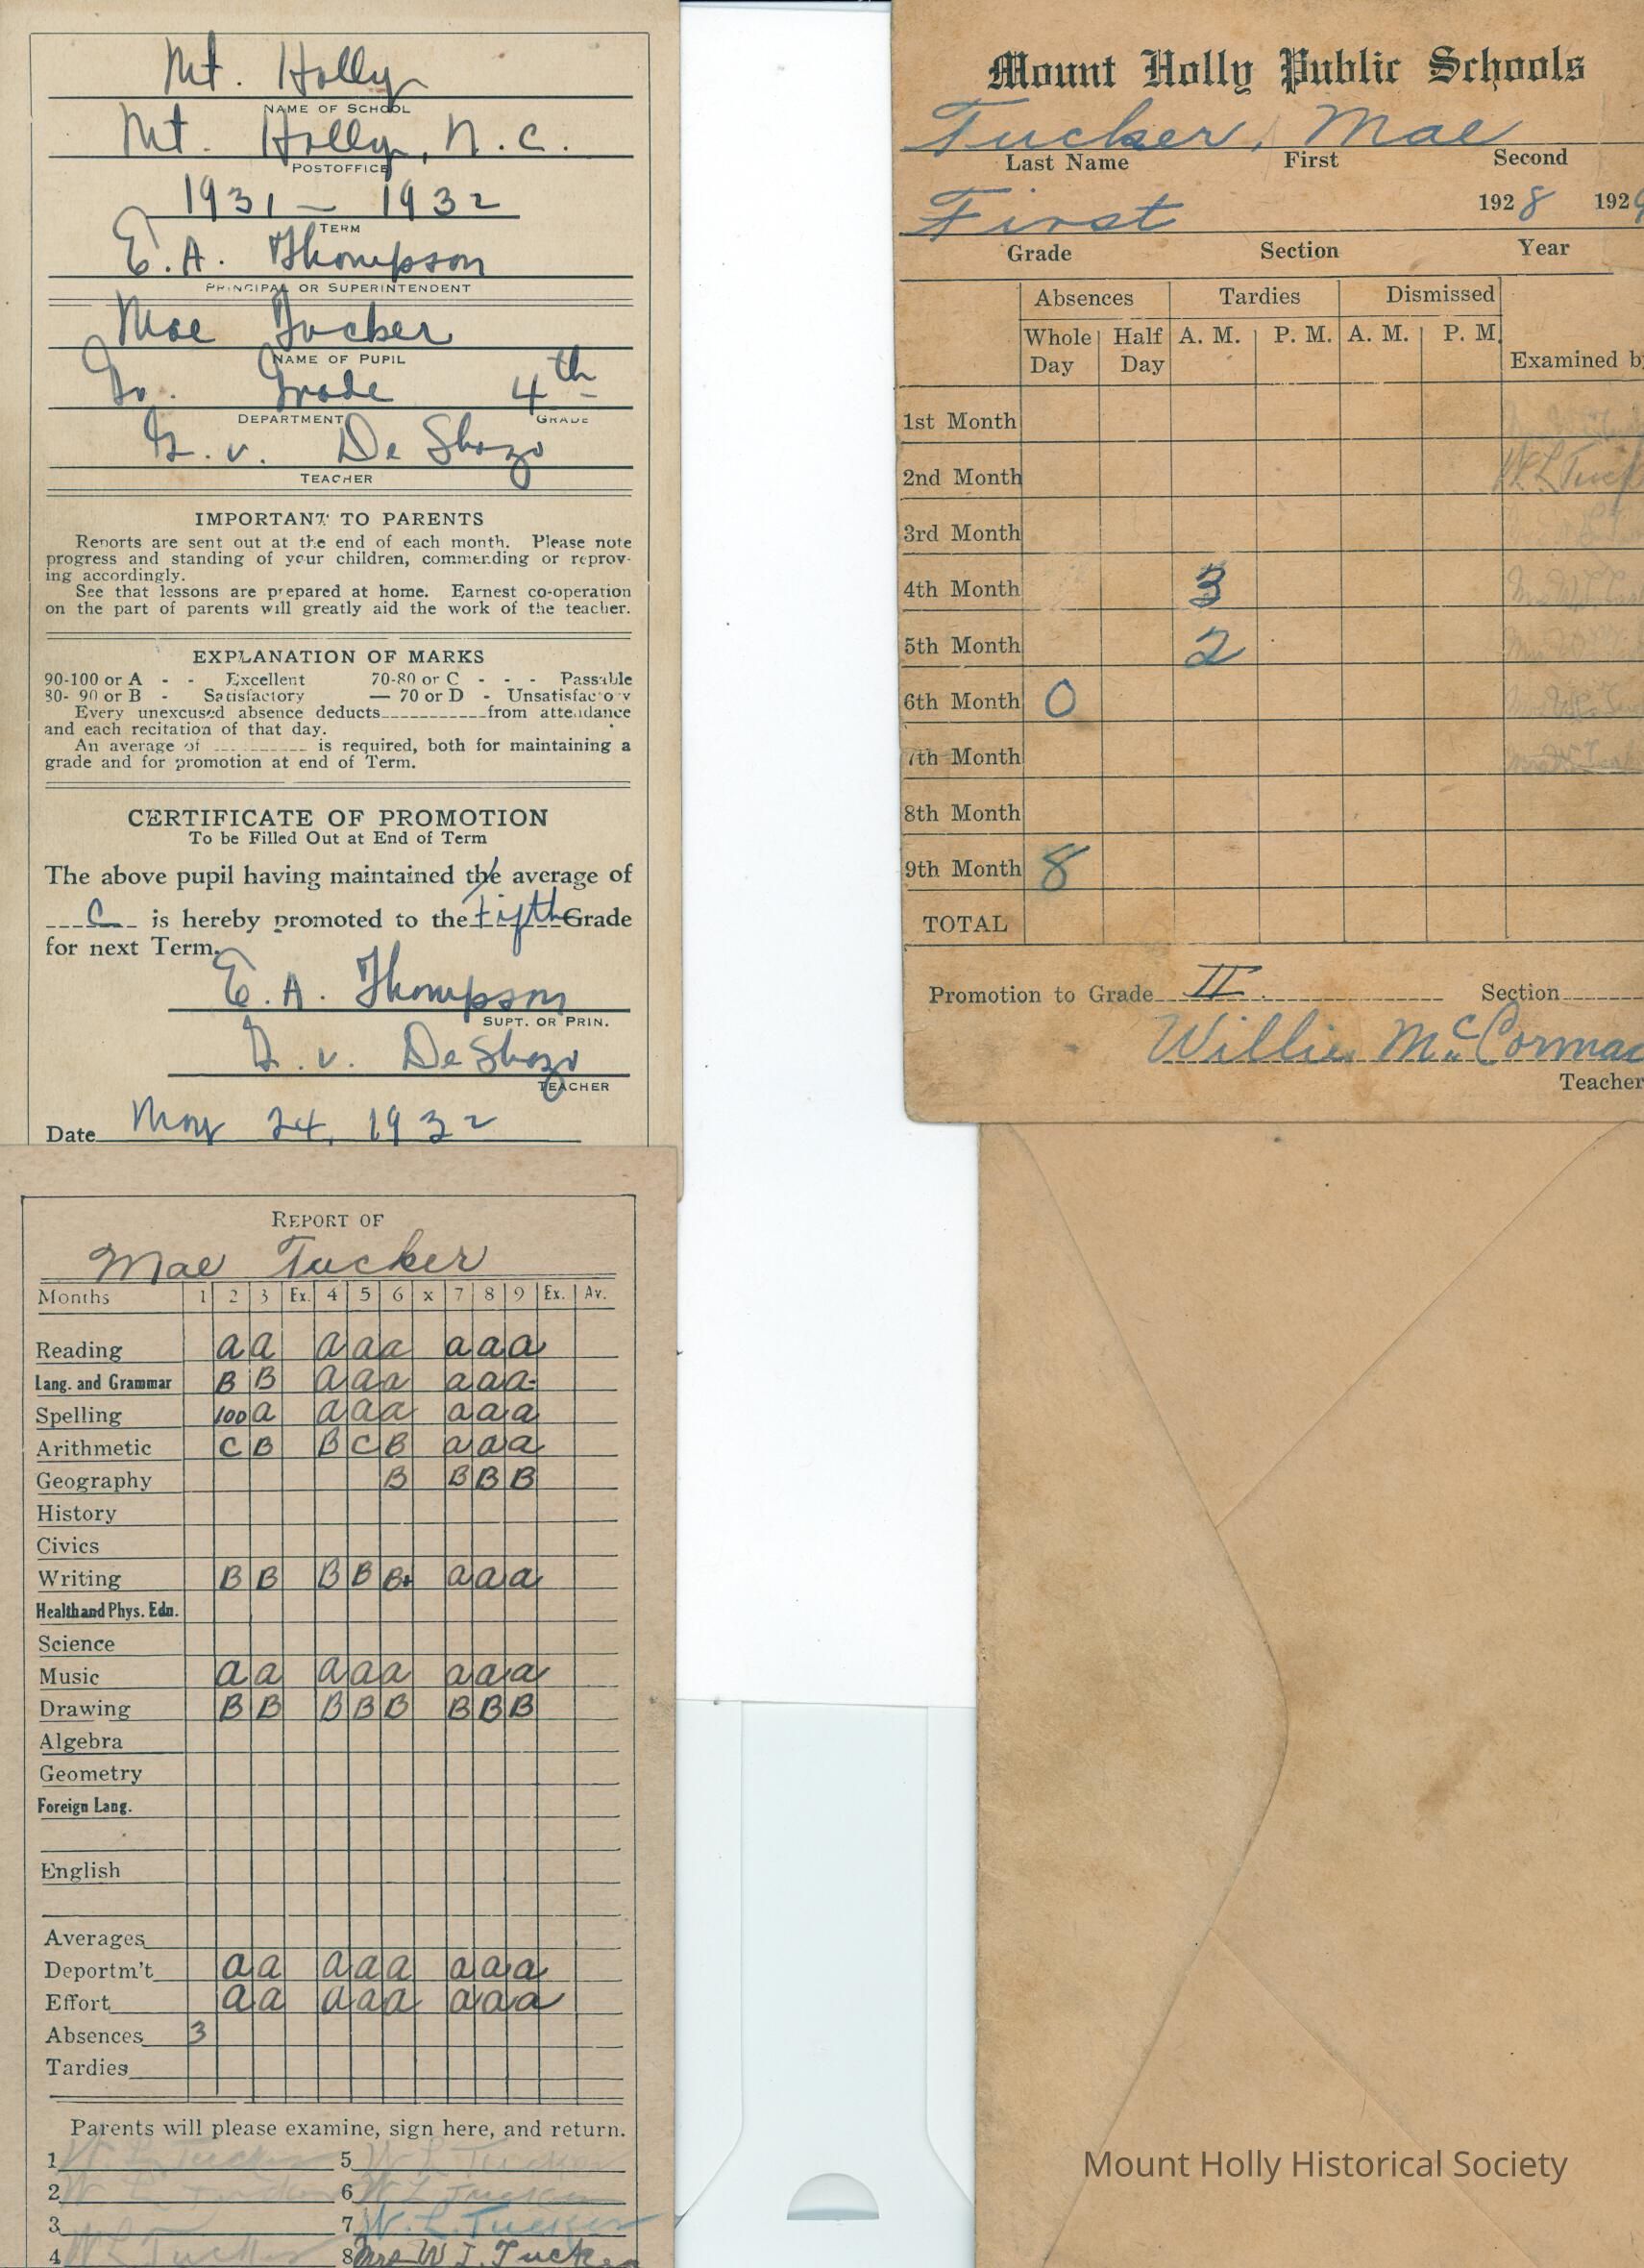 Mt. Holly
NAME OF SCHOOL
Mt. Holly, N.C.
POSTOFFICE
1931 - 1932
TERM
E.A. Thompson
PRINCIPAL OR SUPERINTENDENT
Mae Tucker
NAME OF PUPIL
Grade 4th
DEPARTMENT GRADE
V. DeShazo
TEACHER
IMPORTANT TO PARENTS
Reports are sent out at the end of each month. Please note
progress and standing of your children, commending or reprov-
ing accordingly.
See that lessons are prepared at home. Earnest co-operation
on the part of parents will greatly aid the work of the teacher.
EXPLANATION OF MARKS
90-100 or A - - Excellent 70-80 or C - - - Passable
80- 90 or B - Satisfactory — 70 or D - Unsatisfactory
Every unexcused absence deducts___________from attendance
and each recitation of that day.
An average of ____________ is required, both for maintaining a
grade and for promotion at end of Term.
CERTIFICATE OF PROMOTION
To be Filled Out at End of Term
The above pupil having maintained the average of
C is hereby promoted to the Fifth Grade
for next Term.
E.A. Thompson
SUPT. OR PRIN.
V. DeShazo
TEACHER
Date May 24, 1932
REPORT OF
Mae Tucker
Months 1 2 3 Ex. 4 5 6 x 7 8 9 Ex. Av.
Reading a a a a a a a a
Lang. and Grammar B B a a a a a a-
Spelling 100 a a a a a a a
Arithmetic C B B C B a a a
Geography B B B B
History
Civics
Writing B B B B B+ a a a
Health and Phys. Edn.
Science
Music a a a a a a a a
Drawing B B B B B B B B
Algebra
Geometry
Foreign Lang.
English
Averages
Deportm't a a a a a a a a
Effort a a a a a a a a
Absences 3
Tardies
Parents will please examine, sign here, and return.
1 W L Tucker 5 W L Tucker
2 W L Tucker 6 W L Tucker
3 7 W. L. Tucker
4 W L Tucker 8 Mrs W L Tucker
Mount Holly Public Schools
Tucker, Mae
Last Name First Second
First 1928 1929
Grade Section Year
Absences Tardies Dismissed
Whole Day Half Day A. M. P. M. A. M. P. M. Examined by
1st Month
2nd Month W. L Tuck
3rd Month
4th Month 3
5th Month 2
6th Month 0
7th Month
8th Month
9th Month 8
TOTAL
Promotion to Grade II. Section
Willie McCormac
Teacher
Mount Holly Historical Society